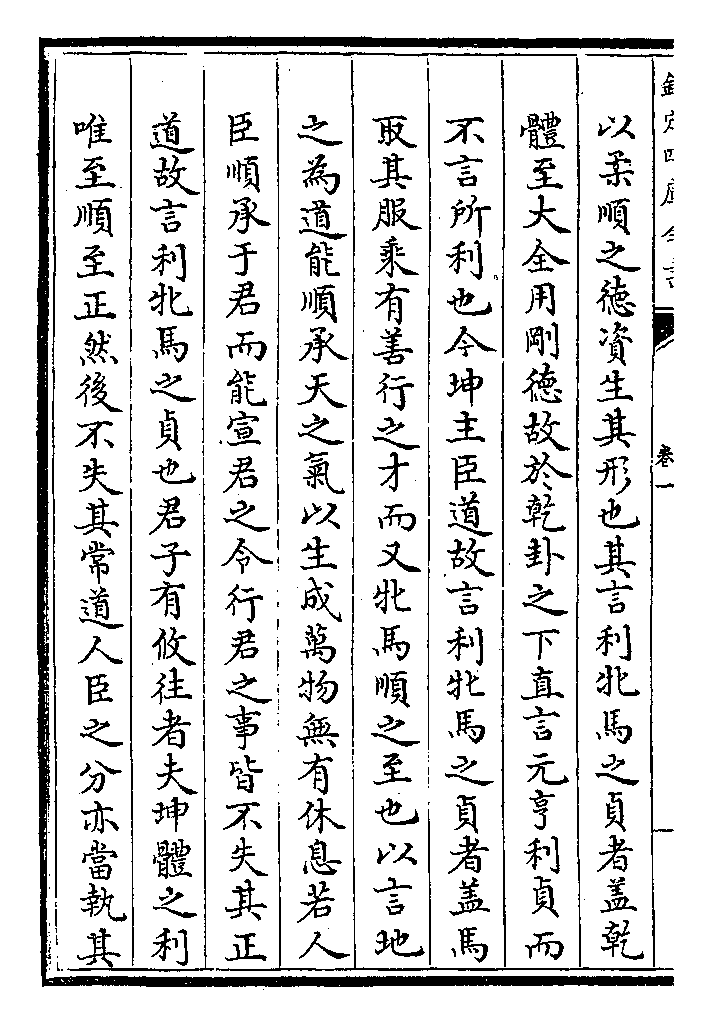 欽定四庫全書
卷一
一
以柔順之德資生其形也其言利牝馬之貞者盖乾
體至大全用剛德故於乾卦之下直言元亨利貞而
不言所利也今坤主臣道故言利牝馬之貞者盖馬
取其服乘有善行之才而又牝馬順之至也以言地
之為道能順承天之氣以生成萬物無有休息若人
臣順承于君而能宣君之令行君之事皆不失其正
道故言利牝馬之貞也君子有攸往者夫坤體之利
唯至順至正然後不失其常道人臣之分亦當執其